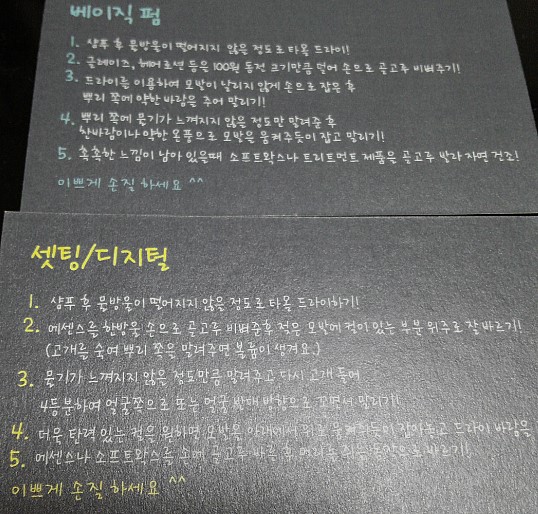 베이직 펌
1. 샴푸 후 물방울이 떨어지지 않을 정도로 타올 드라이!
2. 글레이즈, 헤어로션 등은 100원 동전 크기만큼 덜어 손으로 골고루 비벼주기!
3. 드라이를 이용하여 모발이 날리지 않게 손으로 잡은 후
뿌리 쪽에 약한 바람을 주어 말리기!
4. 뿌리 쪽에 물기가 느껴지지 않을 정도만 말려준 후
찬바람이나 약한 온풍으로 모발을 움켜주듯이 잡고 말리기!
5. 촉촉한 느낌이 남아 있을때 소프트왁스나 트리트먼트 제품을 골고루 발라 자연 건조!
이쁘게 손질 하세요 ^^
셋팅/디지털
1. 샴푸 후 물방울이 떨어지지 않을 정도로 타올 드라이하기!
2. 에센스를 한방울 손으로 골고루 비벼준후 적은 모발에 컬이 있는 부분 위주로 잘 바르기!
(고개를 숙여 뿌리 쪽을 말려주면 볼륨이 생겨요.)
3. 물기가 느껴지지 않을 정도만큼 말려주고 다시 고개 들어
4등분하여 얼굴쪽으로 또는 얼굴 반대 방향으로 꼬면서 말리기!
4. 더욱 탄력 있는 컬을 원하면 모발을 아래에서 위로 움켜쥐듯이 잡아놓고 드라이 바람을
5. 에센스나 소프트왁스를 손에 골고루 바른 후 머리를 쥐는 동작으로 바르기!
이쁘게 손질 하세요 ^^